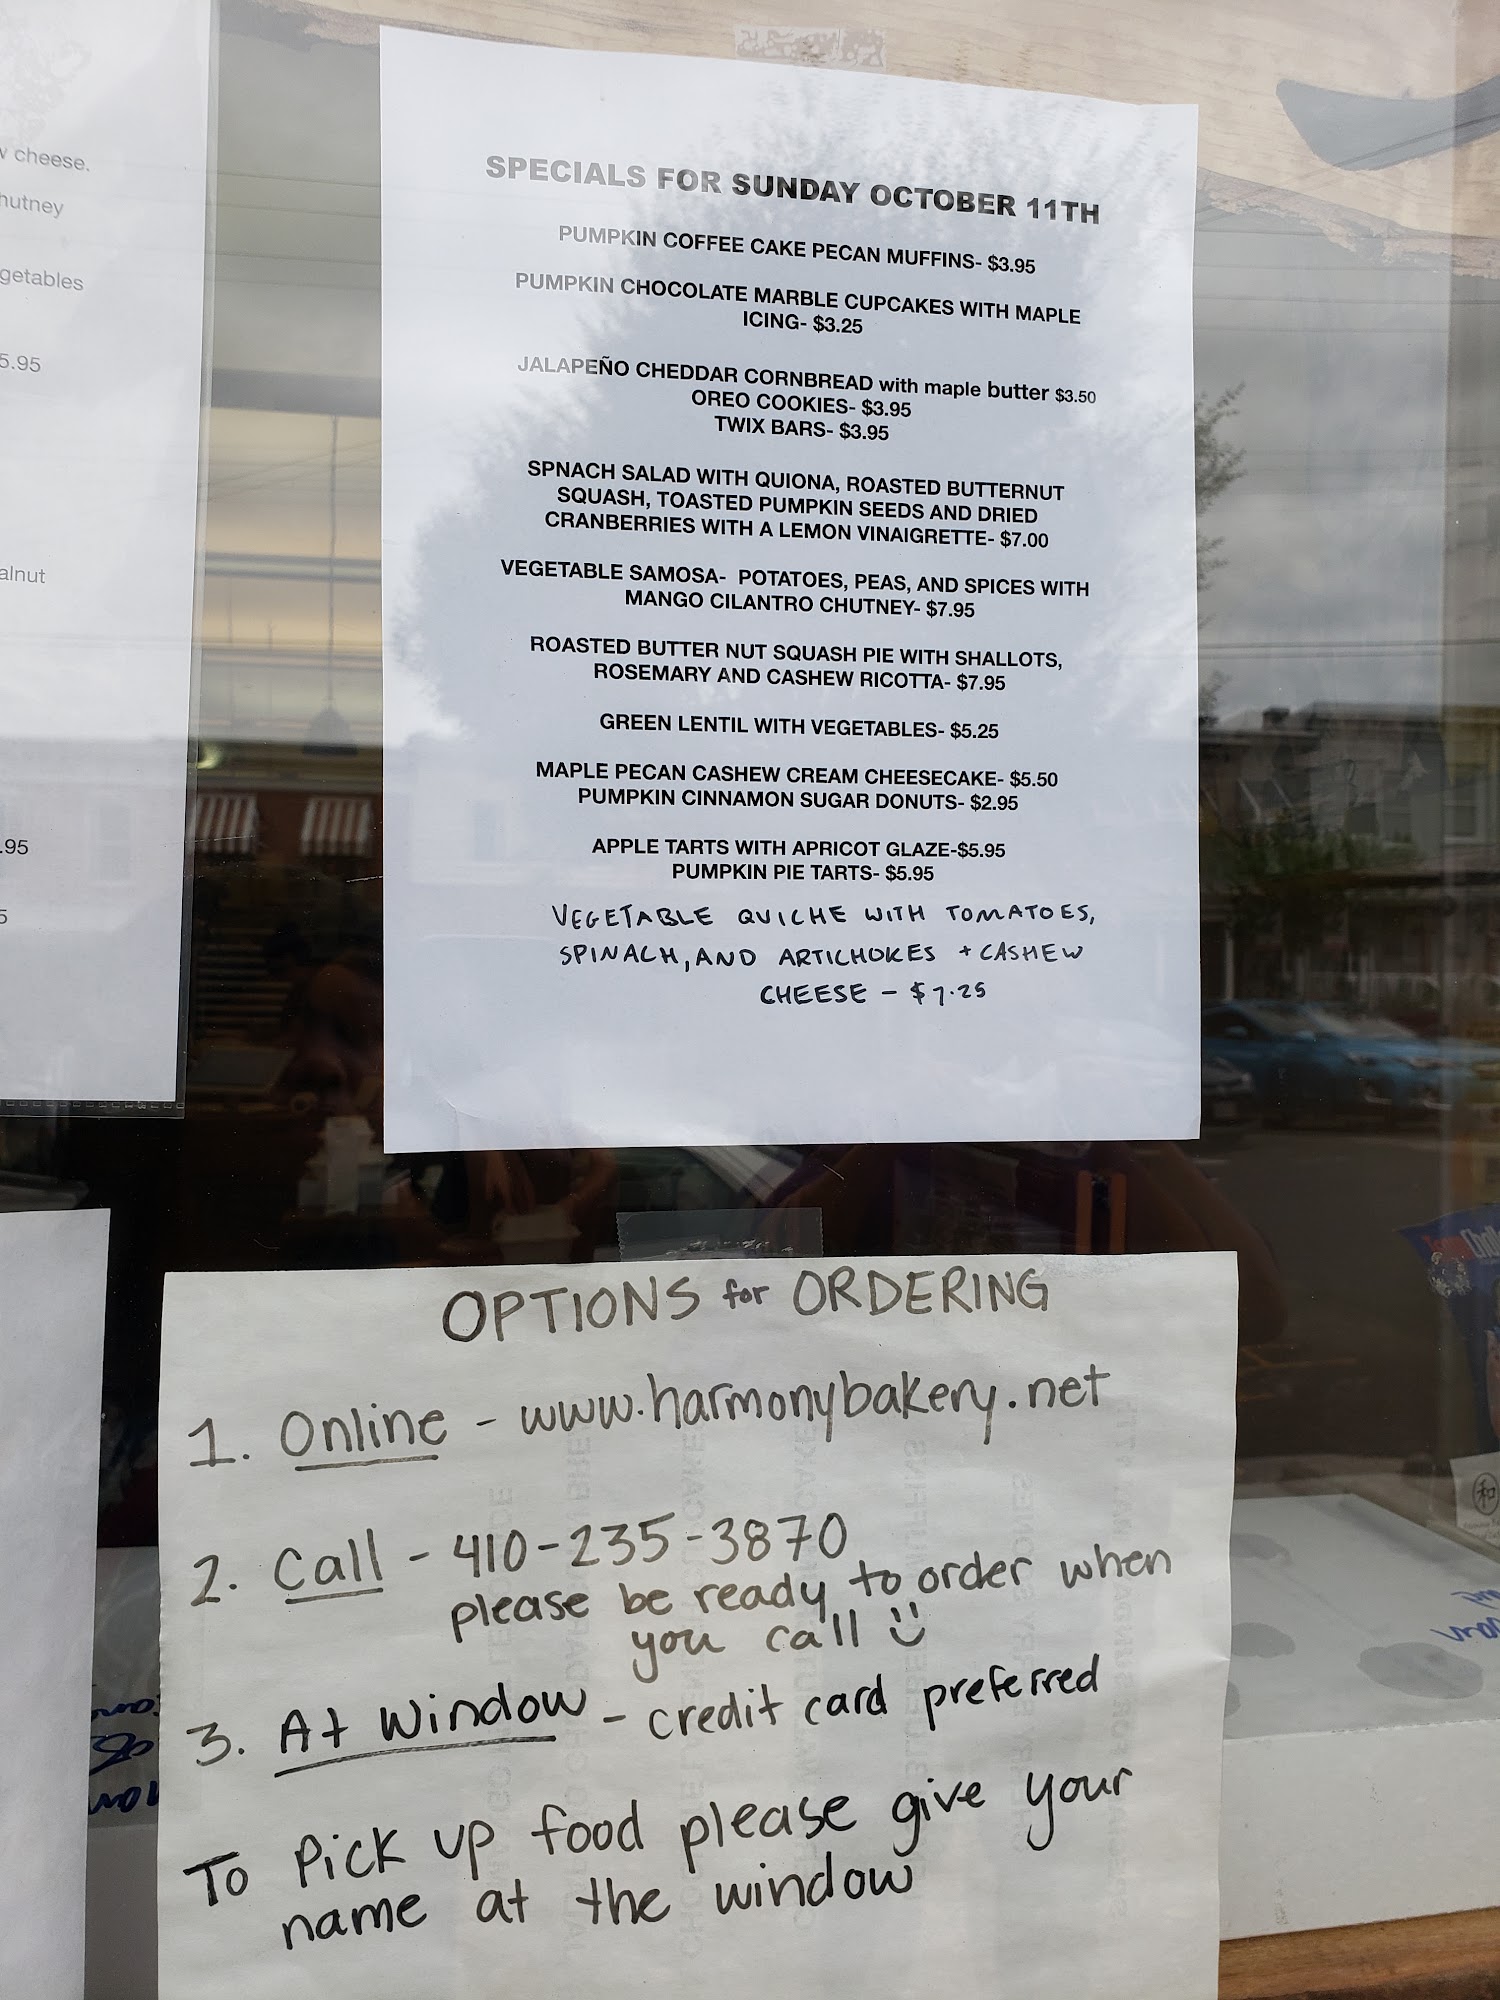 cheese.
hutney
getables
5.95
alnut
.95
5
SPECIALS FOR SUNDAY OCTOBER 11TH
PUMPKIN COFFEE CAKE PECAN MUFFINS- $3.95
PUMPKIN CHOCOLATE MARBLE CUPCAKES WITH MAPLE
ICING- $3.25
JALAPEÑO CHEDDAR CORNBREAD with maple butter $3.50
OREO COOKIES- $3.95
TWIX BARS- $3.95
SPNACH SALAD WITH QUIONA, ROASTED BUTTERNUT
SQUASH, TOASTED PUMPKIN SEEDS AND DRIED
CRANBERRIES WITH A LEMON VINAIGRETTE- $7.00
VEGETABLE SAMOSA- POTATOES, PEAS, AND SPICES WITH
MANGO CILANTRO CHUTNEY- $7.95
ROASTED BUTTER NUT SQUASH PIE WITH SHALLOTS,
ROSEMARY AND CASHEW RICOTTA- $7.95
GREEN LENTIL WITH VEGETABLES- $5.25
MAPLE PECAN CASHEW CREAM CHEESECAKE- $5.50
PUMPKIN CINNAMON SUGAR DONUTS- $2.95
APPLE TARTS WITH APRICOT GLAZE-$5.95
PUMPKIN PIE TARTS- $5.95
VEGETABLE QUICHE WITH TOMATOES,
SPINACH, AND ARTICHOKES + CASHEW
CHEESE - $7.25
OPTIONS for ORDERING
1. Online - www.harmonybakery.net
2. Call - 410-235-3870
please be ready to order when
you call
3. At Window - credit card preferred
To Pick up food please give your
name at the window
和